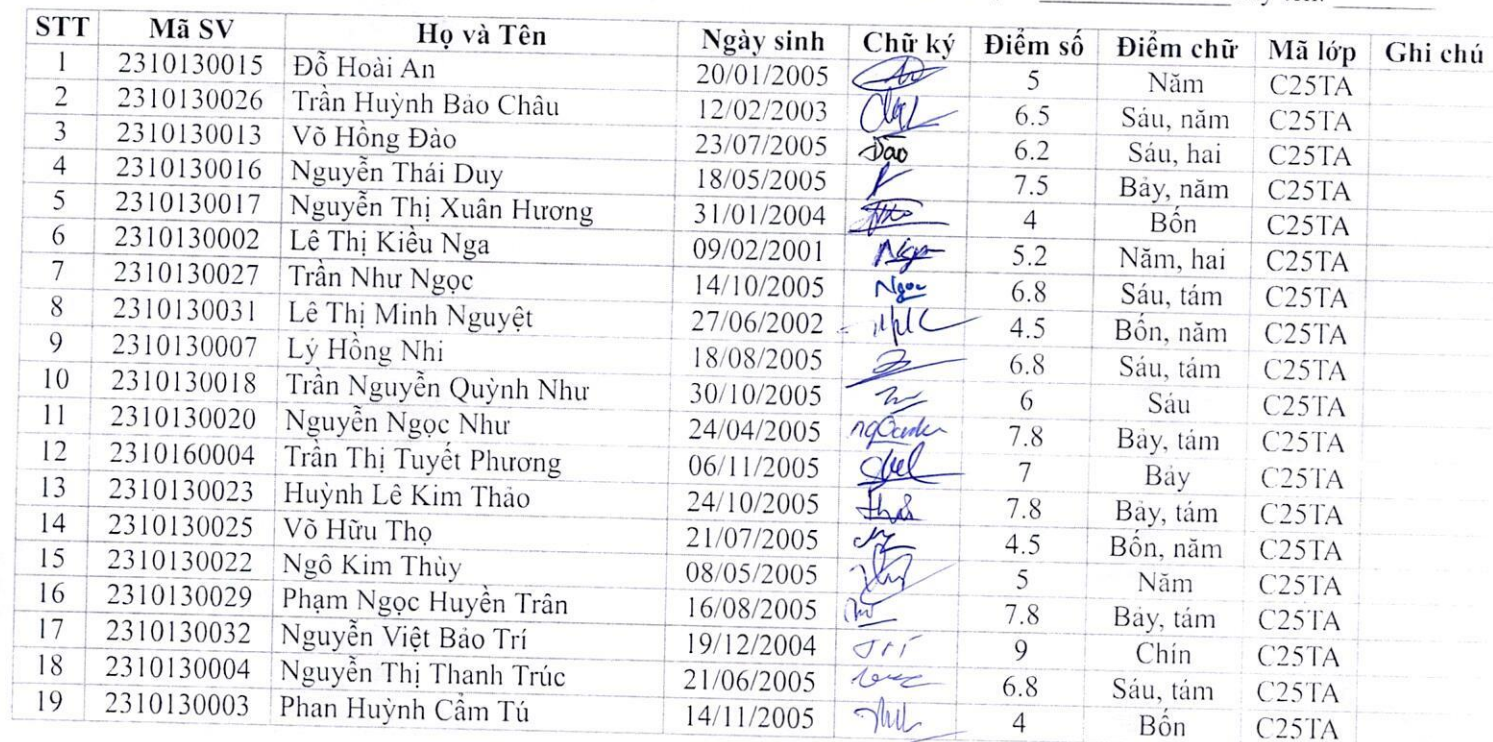 STT Mã SV Họ và Tên Ngày sinh Chữ ký Điểm số Điểm chữ Mã lớp Ghi chú
1 2310130015 Đỗ Hoài An 20/01/2005 5 Năm C25TA
2 2310130026 Trần Huỳnh Bảo Châu 12/02/2003 6.5 Sáu, năm C25TA
3 2310130013 Võ Hồng Đào 23/07/2005 Đào 6.2 Sáu, hai C25TA
4 2310130016 Nguyễn Thái Duy 18/05/2005 7.5 Bảy, năm C25TA
5 2310130017 Nguyễn Thị Xuân Hương 31/01/2004 4 Bốn C25TA
6 2310130002 Lê Thị Kiều Nga 09/02/2001 Nga 5.2 Năm, hai C25TA
7 2310130027 Trần Như Ngọc 14/10/2005 Ngọc 6.8 Sáu, tám C25TA
8 2310130031 Lê Thị Minh Nguyệt 27/06/2002 4.5 Bốn, năm C25TA
9 2310130007 Lý Hồng Nhi 18/08/2005 6.8 Sáu, tám C25TA
10 2310130018 Trần Nguyễn Quỳnh Như 30/10/2005 6 Sáu C25TA
11 2310130020 Nguyễn Ngọc Như 24/04/2005 7.8 Bảy, tám C25TA
12 2310160004 Trần Thị Tuyết Phương 06/11/2005 7 Bảy C25TA
13 2310130023 Huỳnh Lê Kim Thảo 24/10/2005 7.8 Bảy, tám C25TA
14 2310130025 Võ Hữu Thọ 21/07/2005 4.5 Bốn, năm C25TA
15 2310130022 Ngô Kim Thùy 08/05/2005 5 Năm C25TA
16 2310130029 Phạm Ngọc Huyền Trân 16/08/2005 7.8 Bảy, tám C25TA
17 2310130032 Nguyễn Việt Bảo Trí 19/12/2004 Trí 9 Chín C25TA
18 2310130004 Nguyễn Thị Thanh Trúc 21/06/2005 6.8 Sáu, tám C25TA
19 2310130003 Phan Huỳnh Cẩm Tú 14/11/2005 4 Bốn C25TA